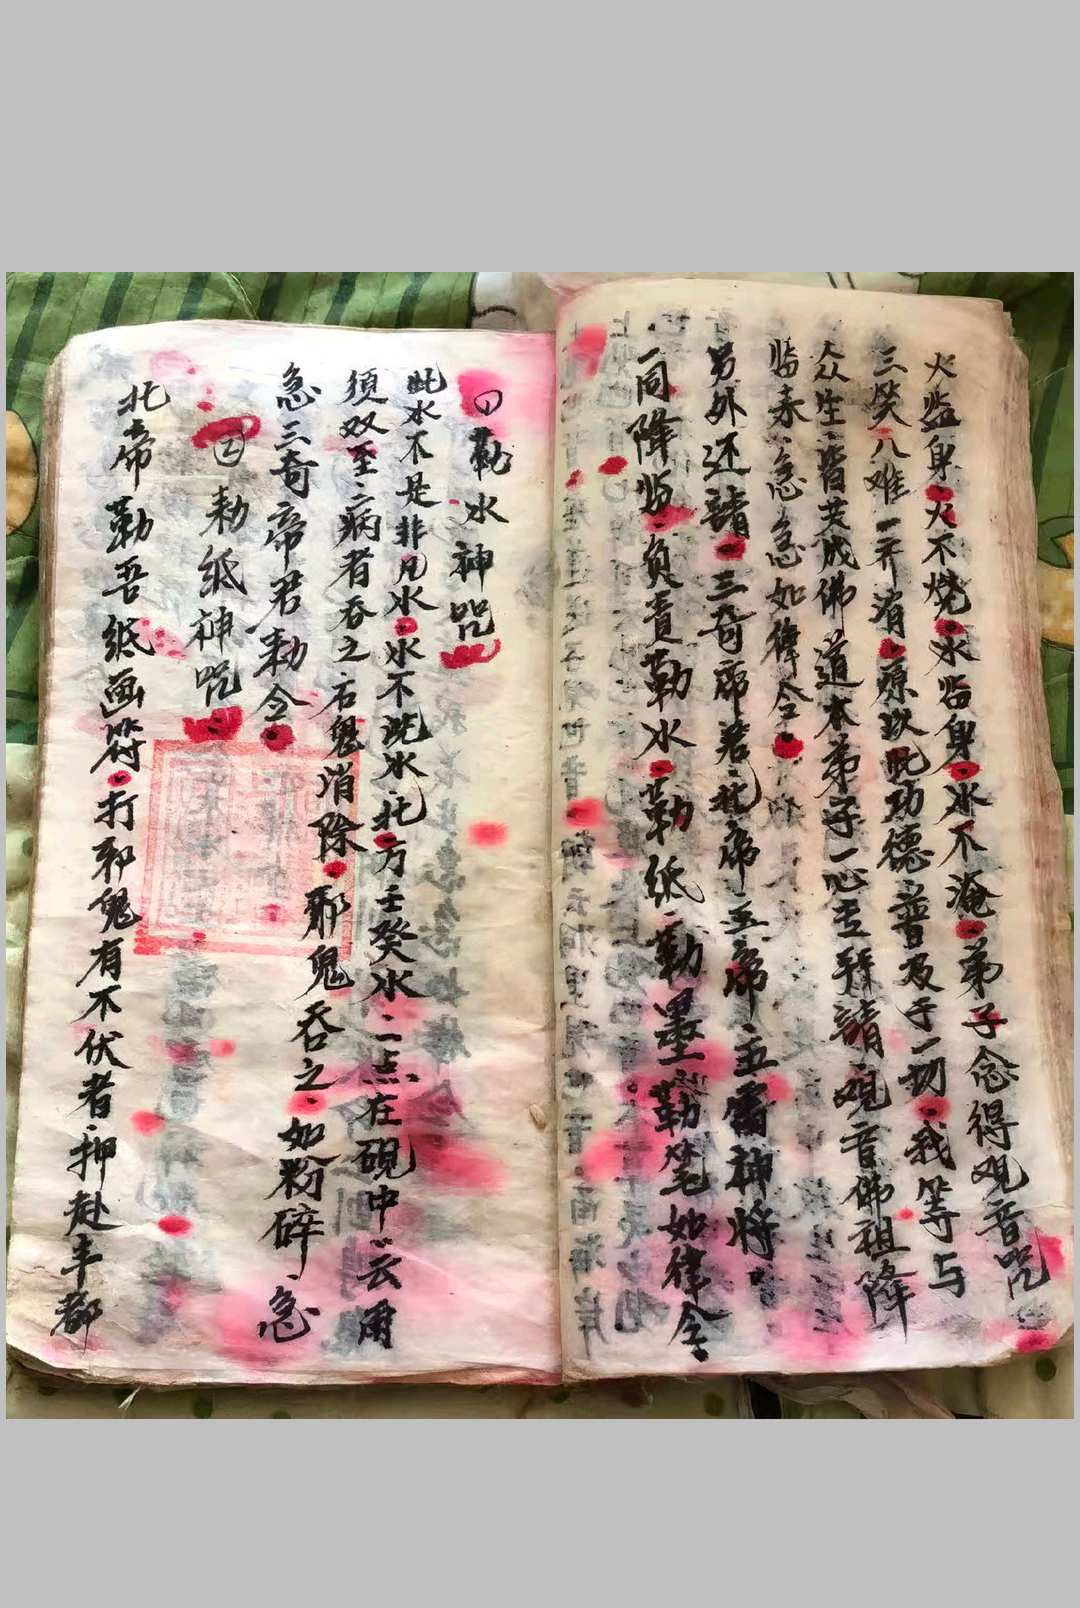 火监身火不烧水临身水不淹弟子念得观音咒
三癸八难一齐消愿以此功德普及于一切我等与
众生皆共成佛道本弟子一心主拜請观音佛祖降
临来急急如律令
另外还請三奇席君北席玉席五雷神将
一同降临负责勒水勒纸勒墨勒笔如律令
①勒水神咒
此水不是非凡水水不洗水北方壬癸水一点在砚中云雨
須双至病者吞之百鬼消除邪鬼吞之如粉碎急
急三奇帝君勅令
②勅纸神咒
北帝勒吾纸画符打邪鬼有不伏者押赴丰都